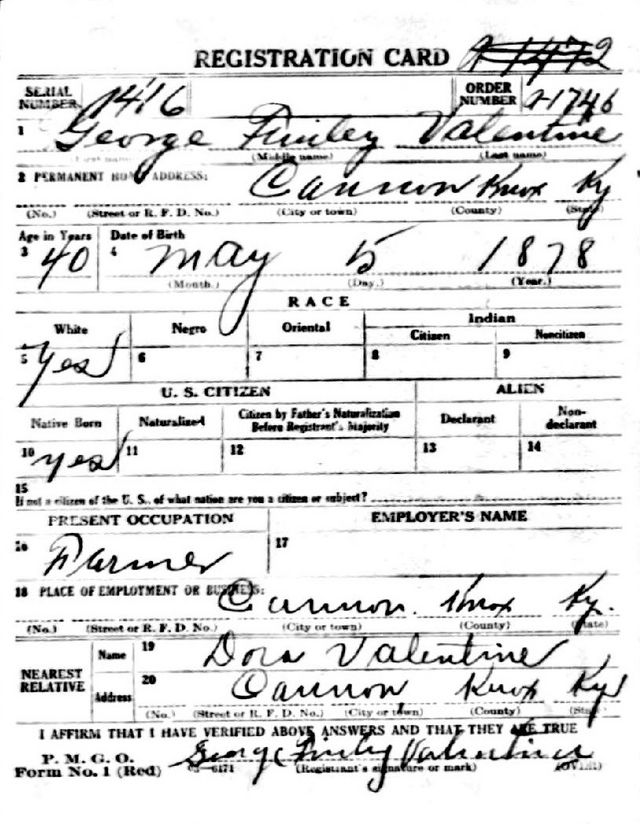 REGISTRATION CARD
SERIAL NUMBER 1416 ORDER NUMBER A1746
1 George Finley Valentine
(First name) (Middle name) (Last name)
2 PERMANENT HOME ADDRESS:
Cannon Knox Ky
(No.) (Street or R. F. D. No.) (City or town) (County) (State)
Age in Years Date of Birth
3 40 4 May 5 1878
(Month.) (Day.) (Year.)
RACE
White Negro Oriental Indian
Citizen Noncitizen
5 Yes 6 7 8 9
U. S. CITIZEN ALIEN
Native Born Naturalized Citizen by Father's Naturalization Before Registrant's Majority Declarant Non-declarant
10 yes 11 12 13 14
15
If not a citizen of the U. S., of what nation are you a citizen or subject?
PRESENT OCCUPATION EMPLOYER'S NAME
16 Farmer 17
18 PLACE OF EMPLOYMENT OR BUSINESS:
Cannon. Knox Ky.
(No.) (Street or R. F. D. No.) (City or town) (County) (State)
NEAREST RELATIVE
Name 19 Dora Valentine
Address 20 Cannon Knox Ky
(No.) (Street or R. F. D. No.) (City or town) (County) (State)
I AFFIRM THAT I HAVE VERIFIED ABOVE ANSWERS AND THAT THEY ARE TRUE
P. M. G. O.
Form No. 1 (Red) George Finley Valentine
(Registrant's signature or mark) (OVER)